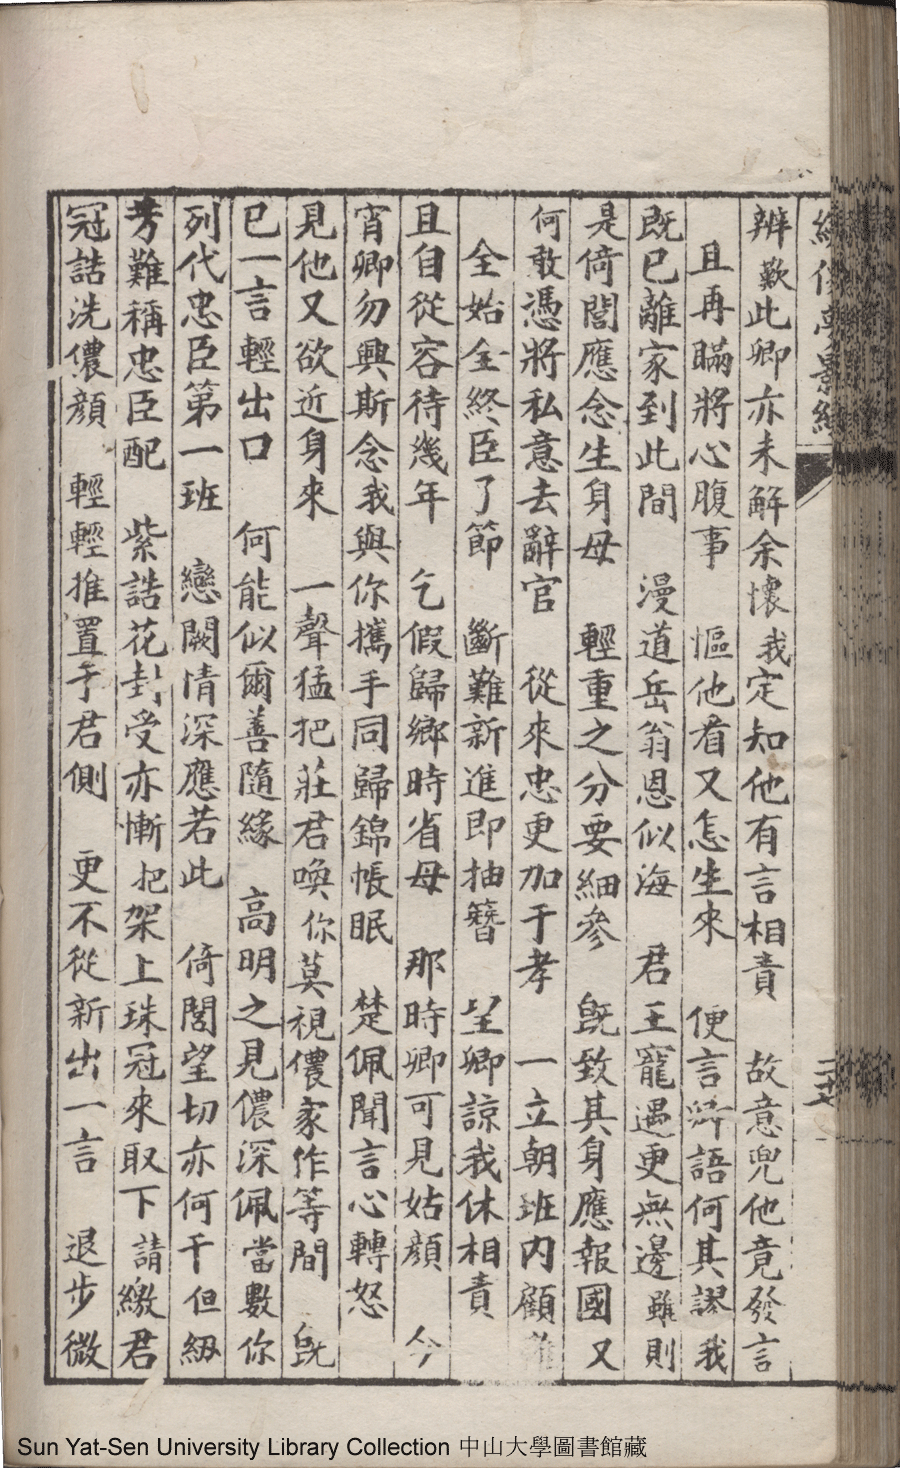 辨歎此卿亦未解余懷我定知他有言相責　故意兜他竟發言
且再瞞將心腹事　慪他看又怎生來　便言卿語何其謬我
既已離家到此間　漫道岳翁恩似海　君王寵遇更無邊雖則
是倚閭應念生身母　輕重之分要細參　旣致其身應報國又
何敢憑將私意去辭官　從來忠更加于孝　一立朝班內顧
全始全終臣了節　斷難新進即抽簪　望卿諒我休相責
且自從容待幾年　乞假歸鄉時省母　那時卿可見姑顏　今
宵卿勿興斯念我與你攜手同歸錦帳眠　楚佩聞言心轉怒
見他又欲近身來　一聲猛把莊君喚你莫視儂家作等間　旣
已一言輕出口　何能似爾善隨緣　高明之見儂深佩當數你
列代忠臣第一班　戀闕情深應若此　倚閭望切亦何干但級
考難稱忠臣配　紫誥花封受亦慚把架上珠冠來取下請繳君
冠誥洗儂顏　輕輕推置于君側　更不從新出一言　退步微
二十七
Sun Yat-Sen University Library Collection 中山大學圖書館藏